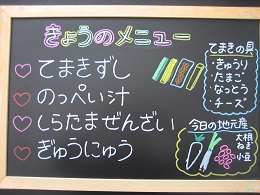 きょうのメニュー
てまきずし
のっぺい汁
しらたまぜんざい
ぎゅうにゅう
てまきの具
・きゅうり
・たまご
・なっとう
・チーズ
今日の地元産
大根
ねぎ
小豆